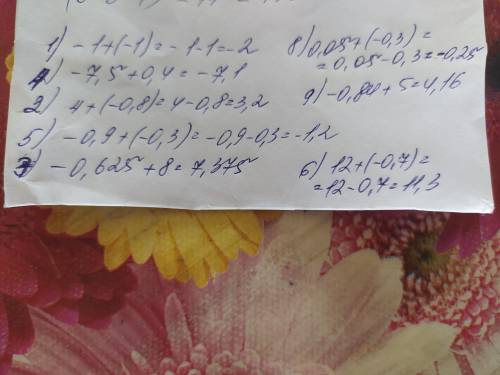 1) -1+(-1)=-1-1=-2
4) -7,5+0,4=-7,1
2) 4+(-0,8)=4-0,8=3,2
5) -0,9+(-0,3)=-0,9-0,3=-1,2
-0,625+8=7,375
8) 0,05+(-0,3)=
=0,05-0,3=-0,25
9) -0,84+5=4,16
6) 12+(-0,7)=
=12-0,7=11,3